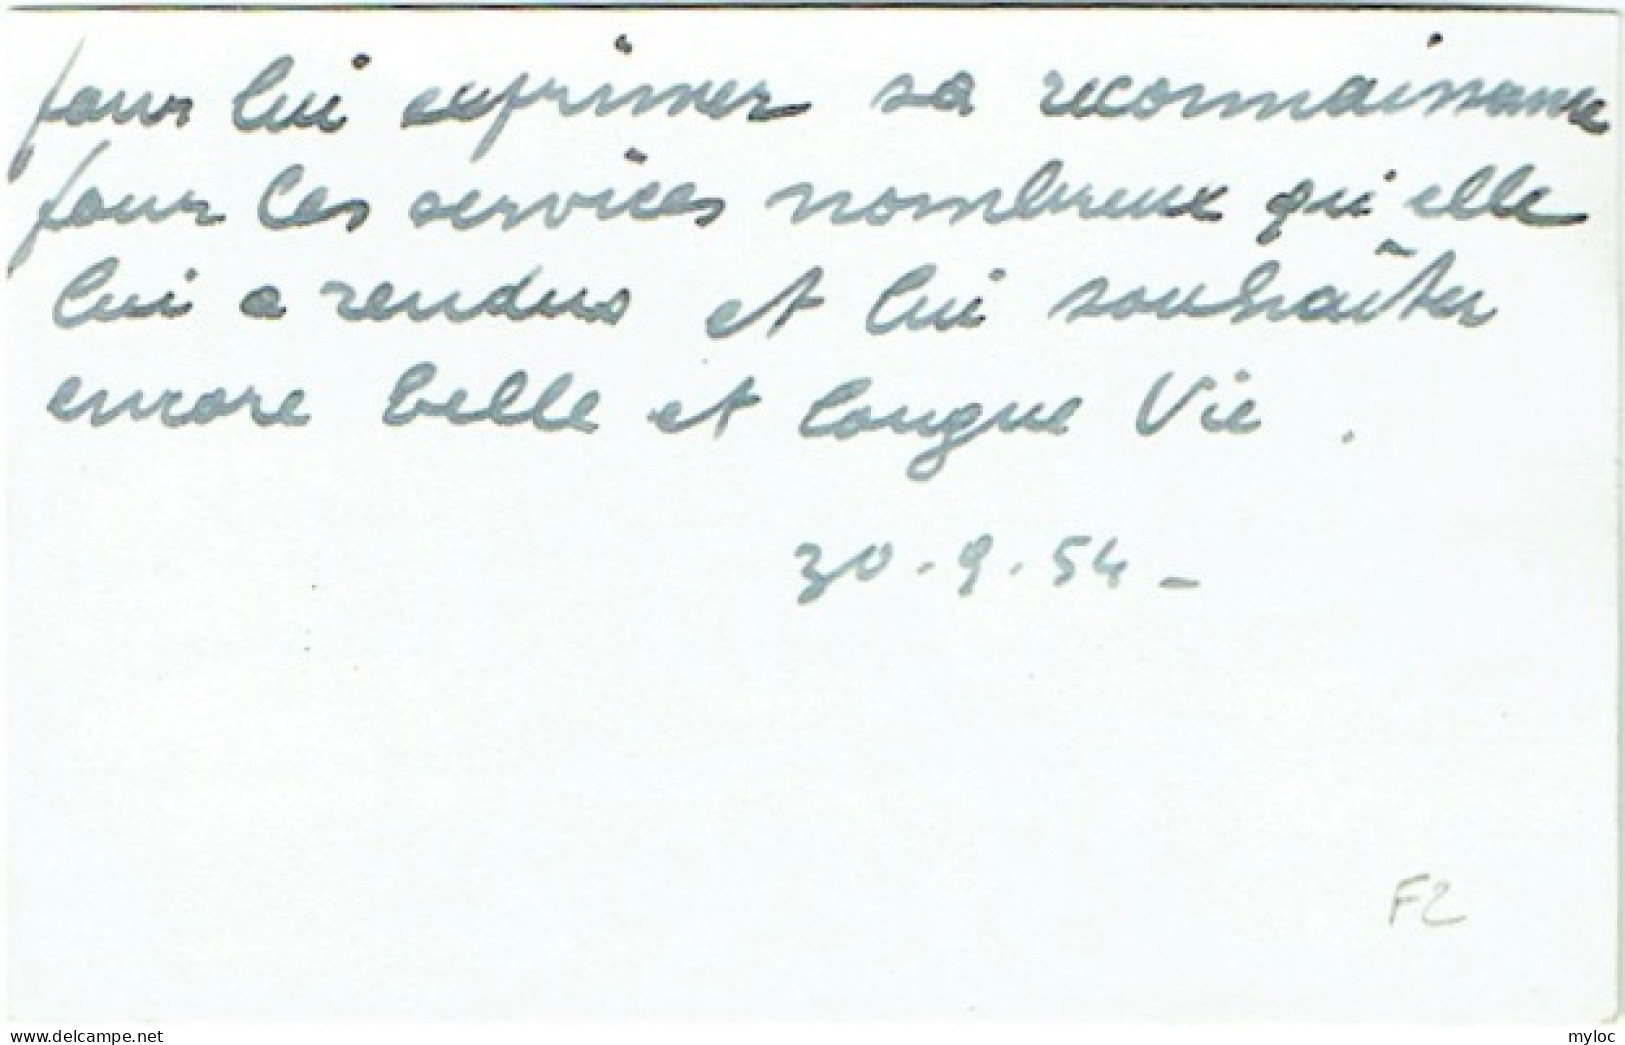 pour lui exprimer sa reconnaissance
pour les services nombreux qu'elle
lui a rendus et lui souhaiter
encore belle et longue Vie.
30-9-54-
F2
www.delcampe.net
myloc